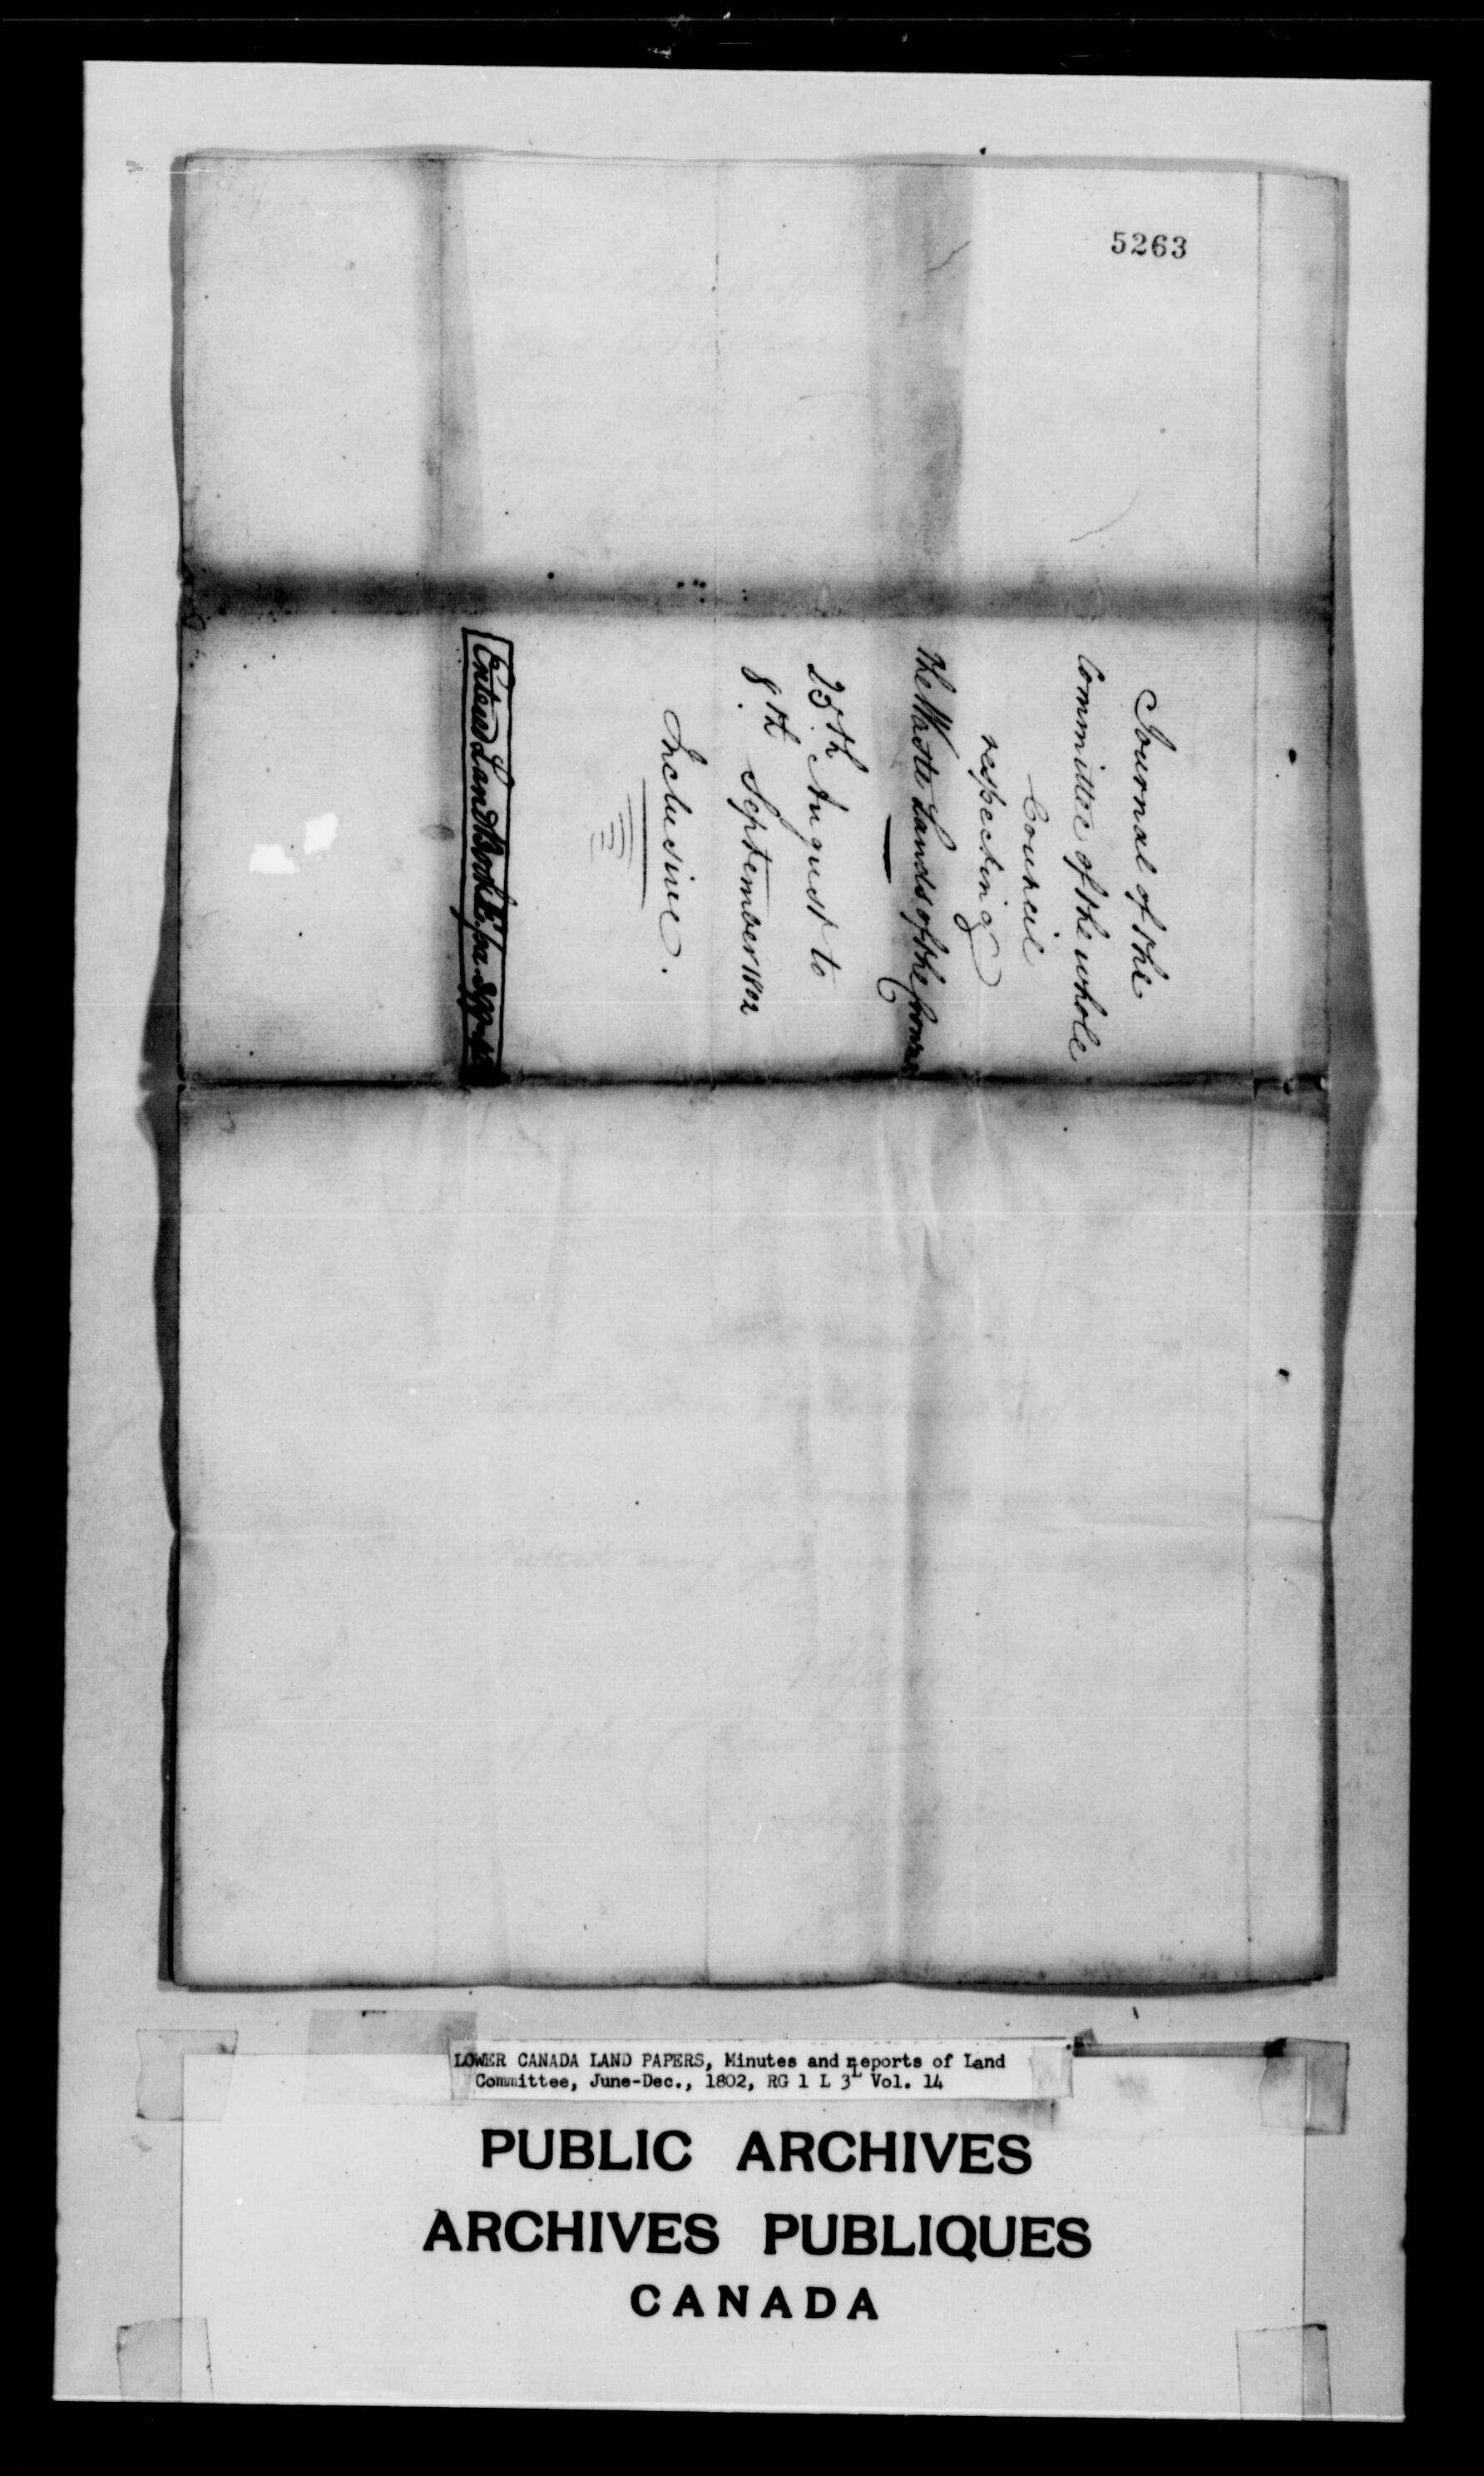 5263
Journal of the
Committee of the whole
Council
respecting
the Waste Lands of the Crown
25th August to
8th September 1802
Inclusive.
Entered Land Book E. pa.
LOWER CANADA LAND PAPERS, Minutes and Reports of Land
Committee, June-Dec., 1802, RG 1 L 3L Vol. 14
PUBLIC ARCHIVES
ARCHIVES PUBLIQUES
CANADA